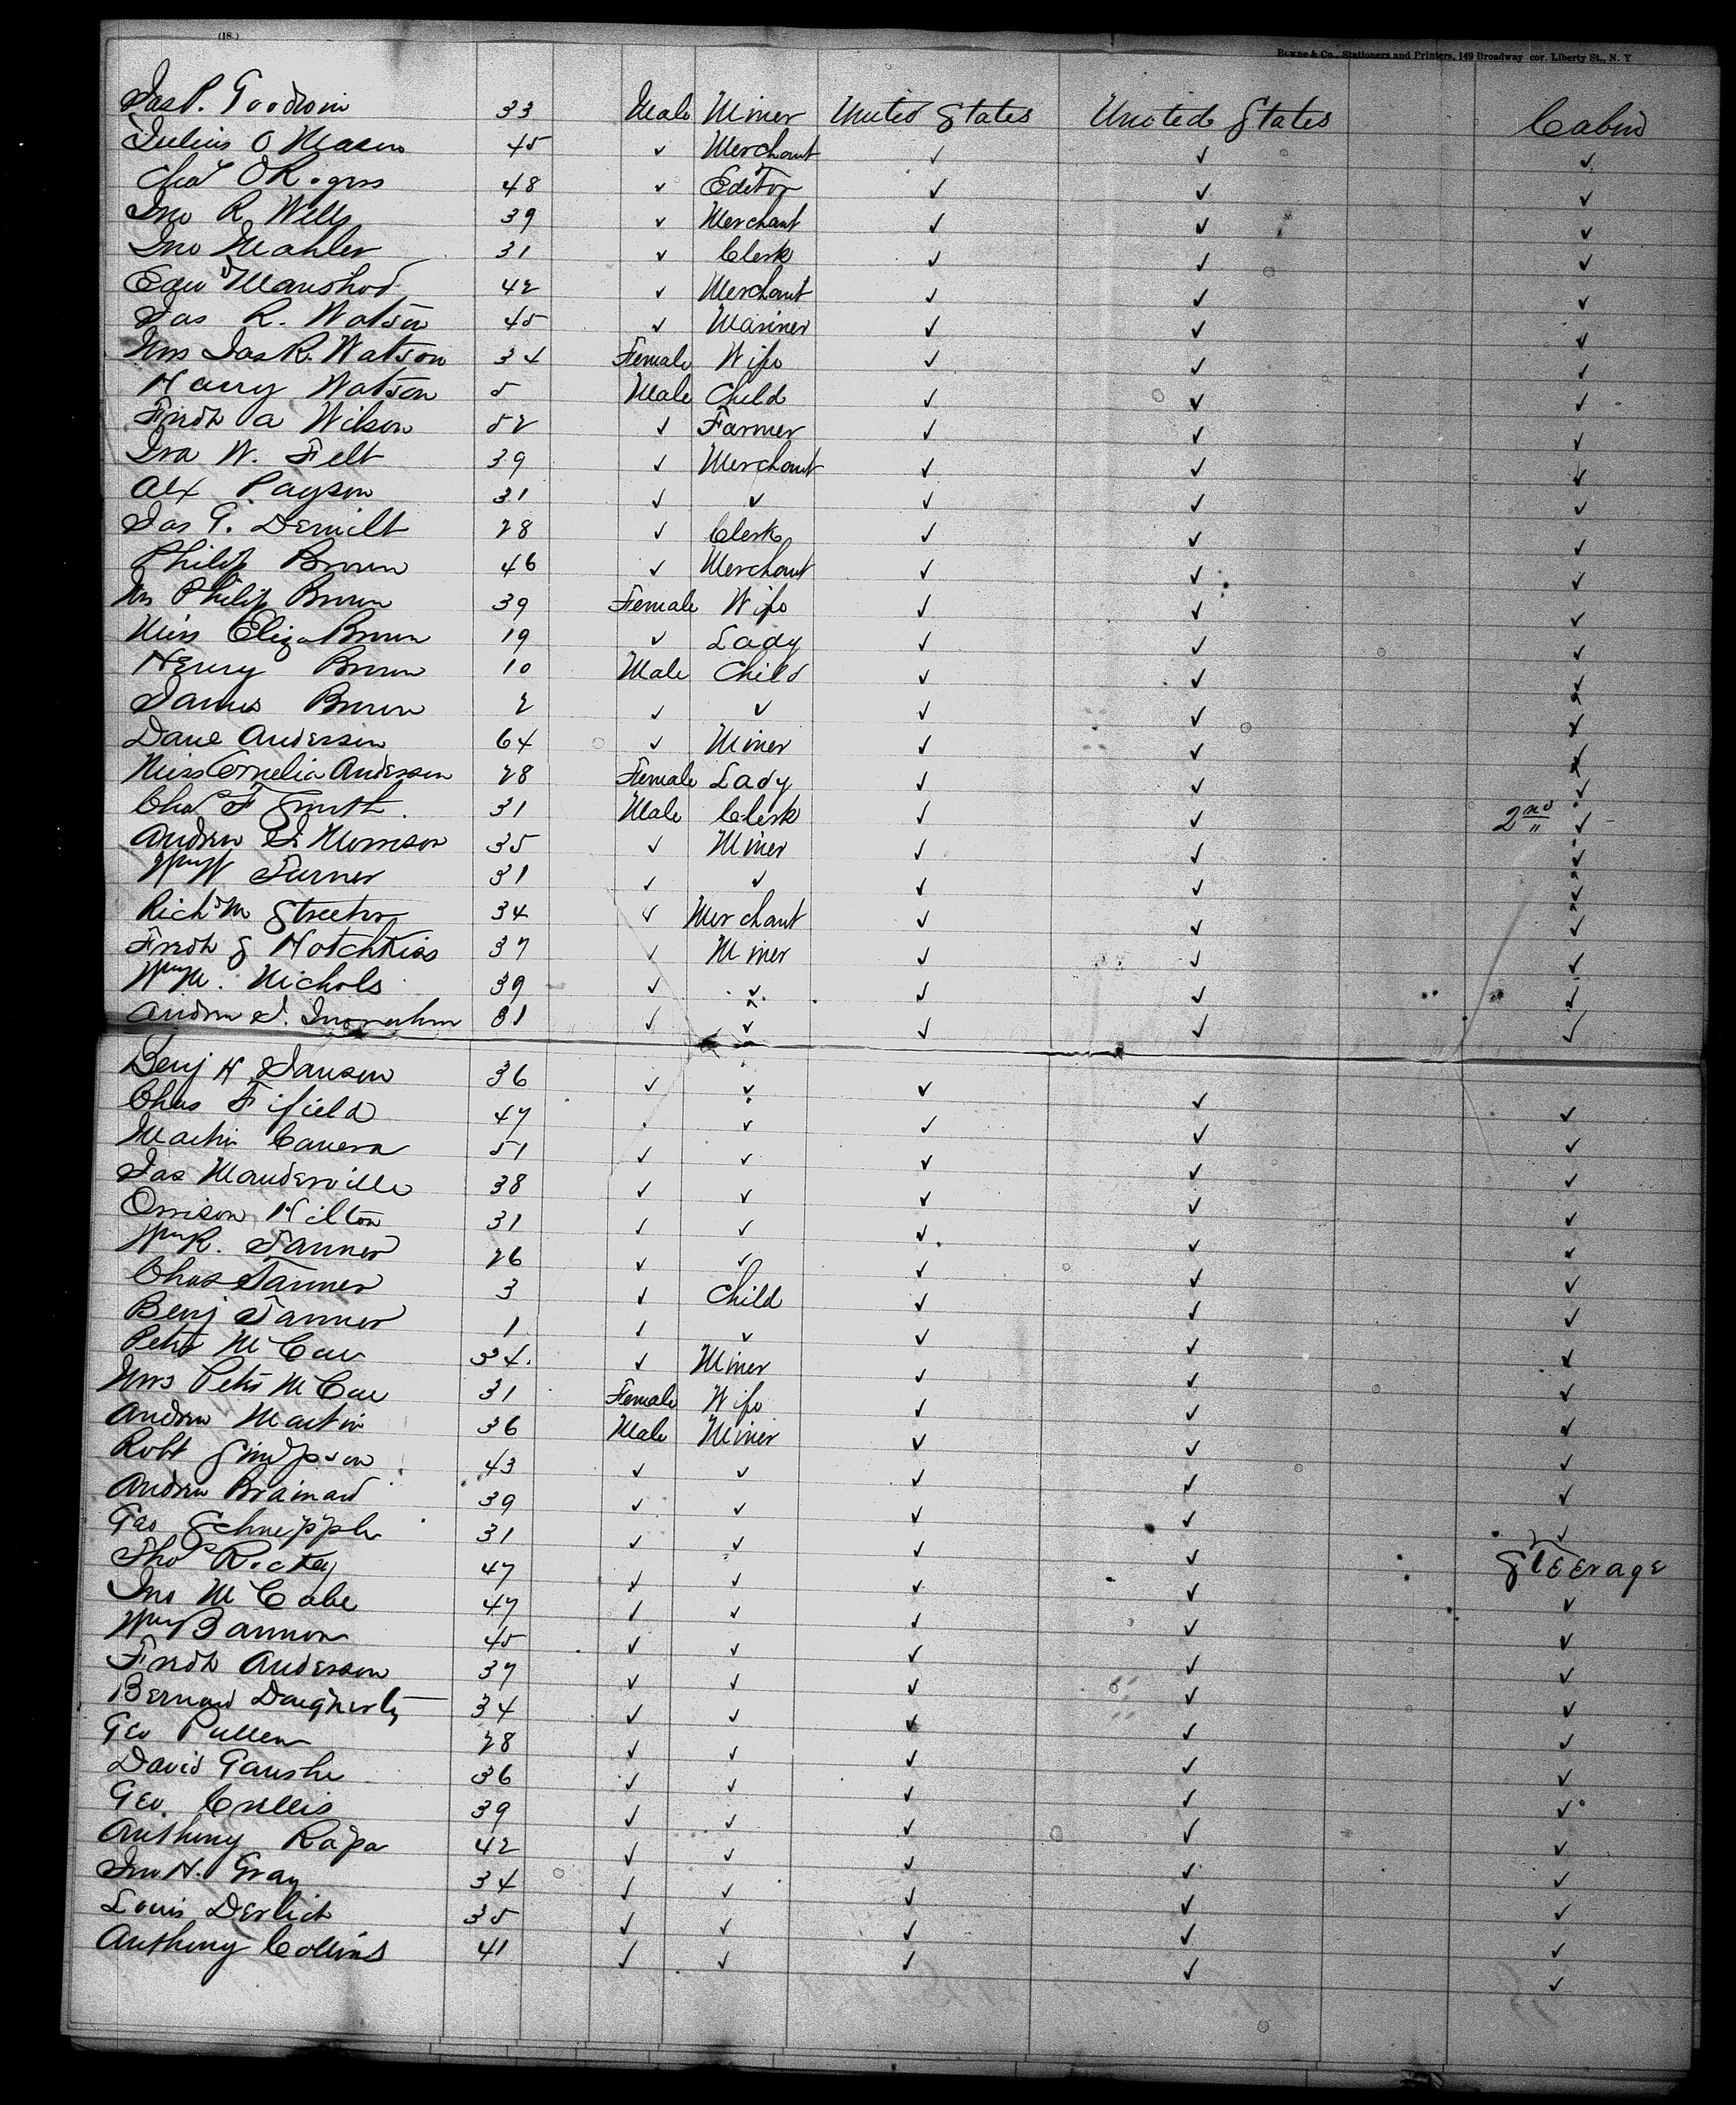 (18.)
Bowne & Co., Stationers and Printers, 149 Broadway cor. Liberty St., N. Y
Jas P. Goodwin 33 Male Miner United States United States Cabin
Julius O Mason 45 ✓ Merchant ✓ ✓ ✓
Chas O Rogers 48 ✓ Editor ✓ ✓ ✓
Jno R. Wells 39 ✓ Merchant ✓ ✓ ✓
Jno Mahler 31 ✓ Clerk ✓ ✓ ✓
Edwd 42 ✓ Merchant ✓ ✓ ✓
Jas R. Watson 45 ✓ Mariner ✓ ✓ ✓
Mrs Jas R. Watson 34 Female Wife ✓ ✓ ✓
Harry Watson 5 Male Child ✓ ✓ ✓
Fredk A Wilson 52 ✓ Farmer ✓ ✓ ✓
Ira W. Felt 39 ✓ Merchant ✓ ✓ ✓
Alx Payson 31 ✓ ✓ ✓ ✓ ✓
Jas G. Demilt 28 ✓ Clerk ✓ ✓ ✓
Philip Brown 46 ✓ Merchant ✓ ✓ ✓
Mrs Philip Brown 39 Female Wife ✓ ✓ ✓
Miss Eliza Brown 19 ✓ Lady ✓ ✓ ✓
Henry Brown 10 Male Child ✓ ✓ ✓
James Brown 2 ✓ ✓ ✓ ✓ ✓
Dane Anderson 64 ✓ Miner ✓ ✓ ✓
Miss Cornelia Anderson 28 Female Lady ✓ ✓ ✓
Chas F Smith 31 Male Clerk ✓ ✓ 2nd " ✓
Andrew Morrison 35 ✓ Miner ✓ ✓ ✓
Wm W Turner 31 ✓ ✓ ✓ ✓ ✓
Richd M Streeter 34 ✓ Merchant ✓ ✓ ✓
Fredk S Hotchkiss 37 ✓ Miner ✓ ✓ ✓
Wm M. Nichols 39 ✓ ✓ ✓ ✓ ✓
Andrew J. 31 ✓ ✓ ✓ ✓ ✓
Benj H Janson 36 ✓ ✓ ✓ ✓ ✓
Chas Fifield 47 ✓ ✓ ✓ ✓
Martin Cavera 51 ✓ ✓ ✓ ✓ ✓
Jas Manderville 38 ✓ ✓ ✓ ✓ ✓
Orrison Hilton 31 ✓ ✓ ✓ ✓ ✓
Wm R. Tanner 26 ✓ ✓ ✓ ✓ ✓
Chas Tanner 3 ✓ Child ✓ ✓ ✓
Benj Tanner 1 ✓ ✓ ✓ ✓ ✓
Peter McCaw 34. ✓ Miner ✓ ✓ ✓
Mrs Peter McCaw 31 Female Wife ✓ ✓ ✓
Andrew Martin 36 Male Miner ✓ ✓ ✓
Robt Simpson 43 ✓ ✓ ✓ ✓ ✓
Andrew Brainard 39 ✓ ✓ ✓ ✓ ✓
Geo Schnepple 31 ✓ ✓ ✓ ✓ ✓
Thos Rickey 47 ✓ ✓ ✓ ✓ Steerage
Jno McCabe 47 ✓ ✓ ✓ ✓ ✓
Wm Bannon 45 ✓ ✓ ✓ ✓ ✓
Fredk Anderson 37 ✓ ✓ ✓ ✓ ✓
Bernard Daugherty 34 ✓ ✓ ✓ ✓ ✓
Geo Pullen 28 ✓ ✓ ✓ ✓ ✓
David Gaushe 36 ✓ ✓ ✓ ✓ ✓
Geo. Crellis 39 ✓ ✓ ✓ ✓ ✓
Anthony Rapa 42 ✓ ✓ ✓ ✓ ✓
Jno H. Gray 34 ✓ ✓ ✓ ✓ ✓
Louis Derlich 35 ✓ ✓ ✓ ✓ ✓
Anthony Collins 41 ✓ ✓ ✓ ✓ ✓